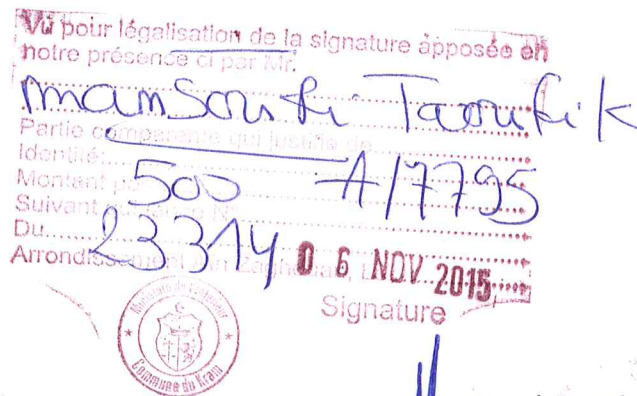 Vu pour légalisation de la signature apposée en
notre présence ci par Mr.
mansouri Taoufik
Partie comparante qui justifie de
Identité:
Montant 500 A/7795
Suivant
Du 23314 06 NOV 2015
Arrondissement Ain Zaghouan, L
Signature
Ministère de l'Intérieur
Commune du Kram